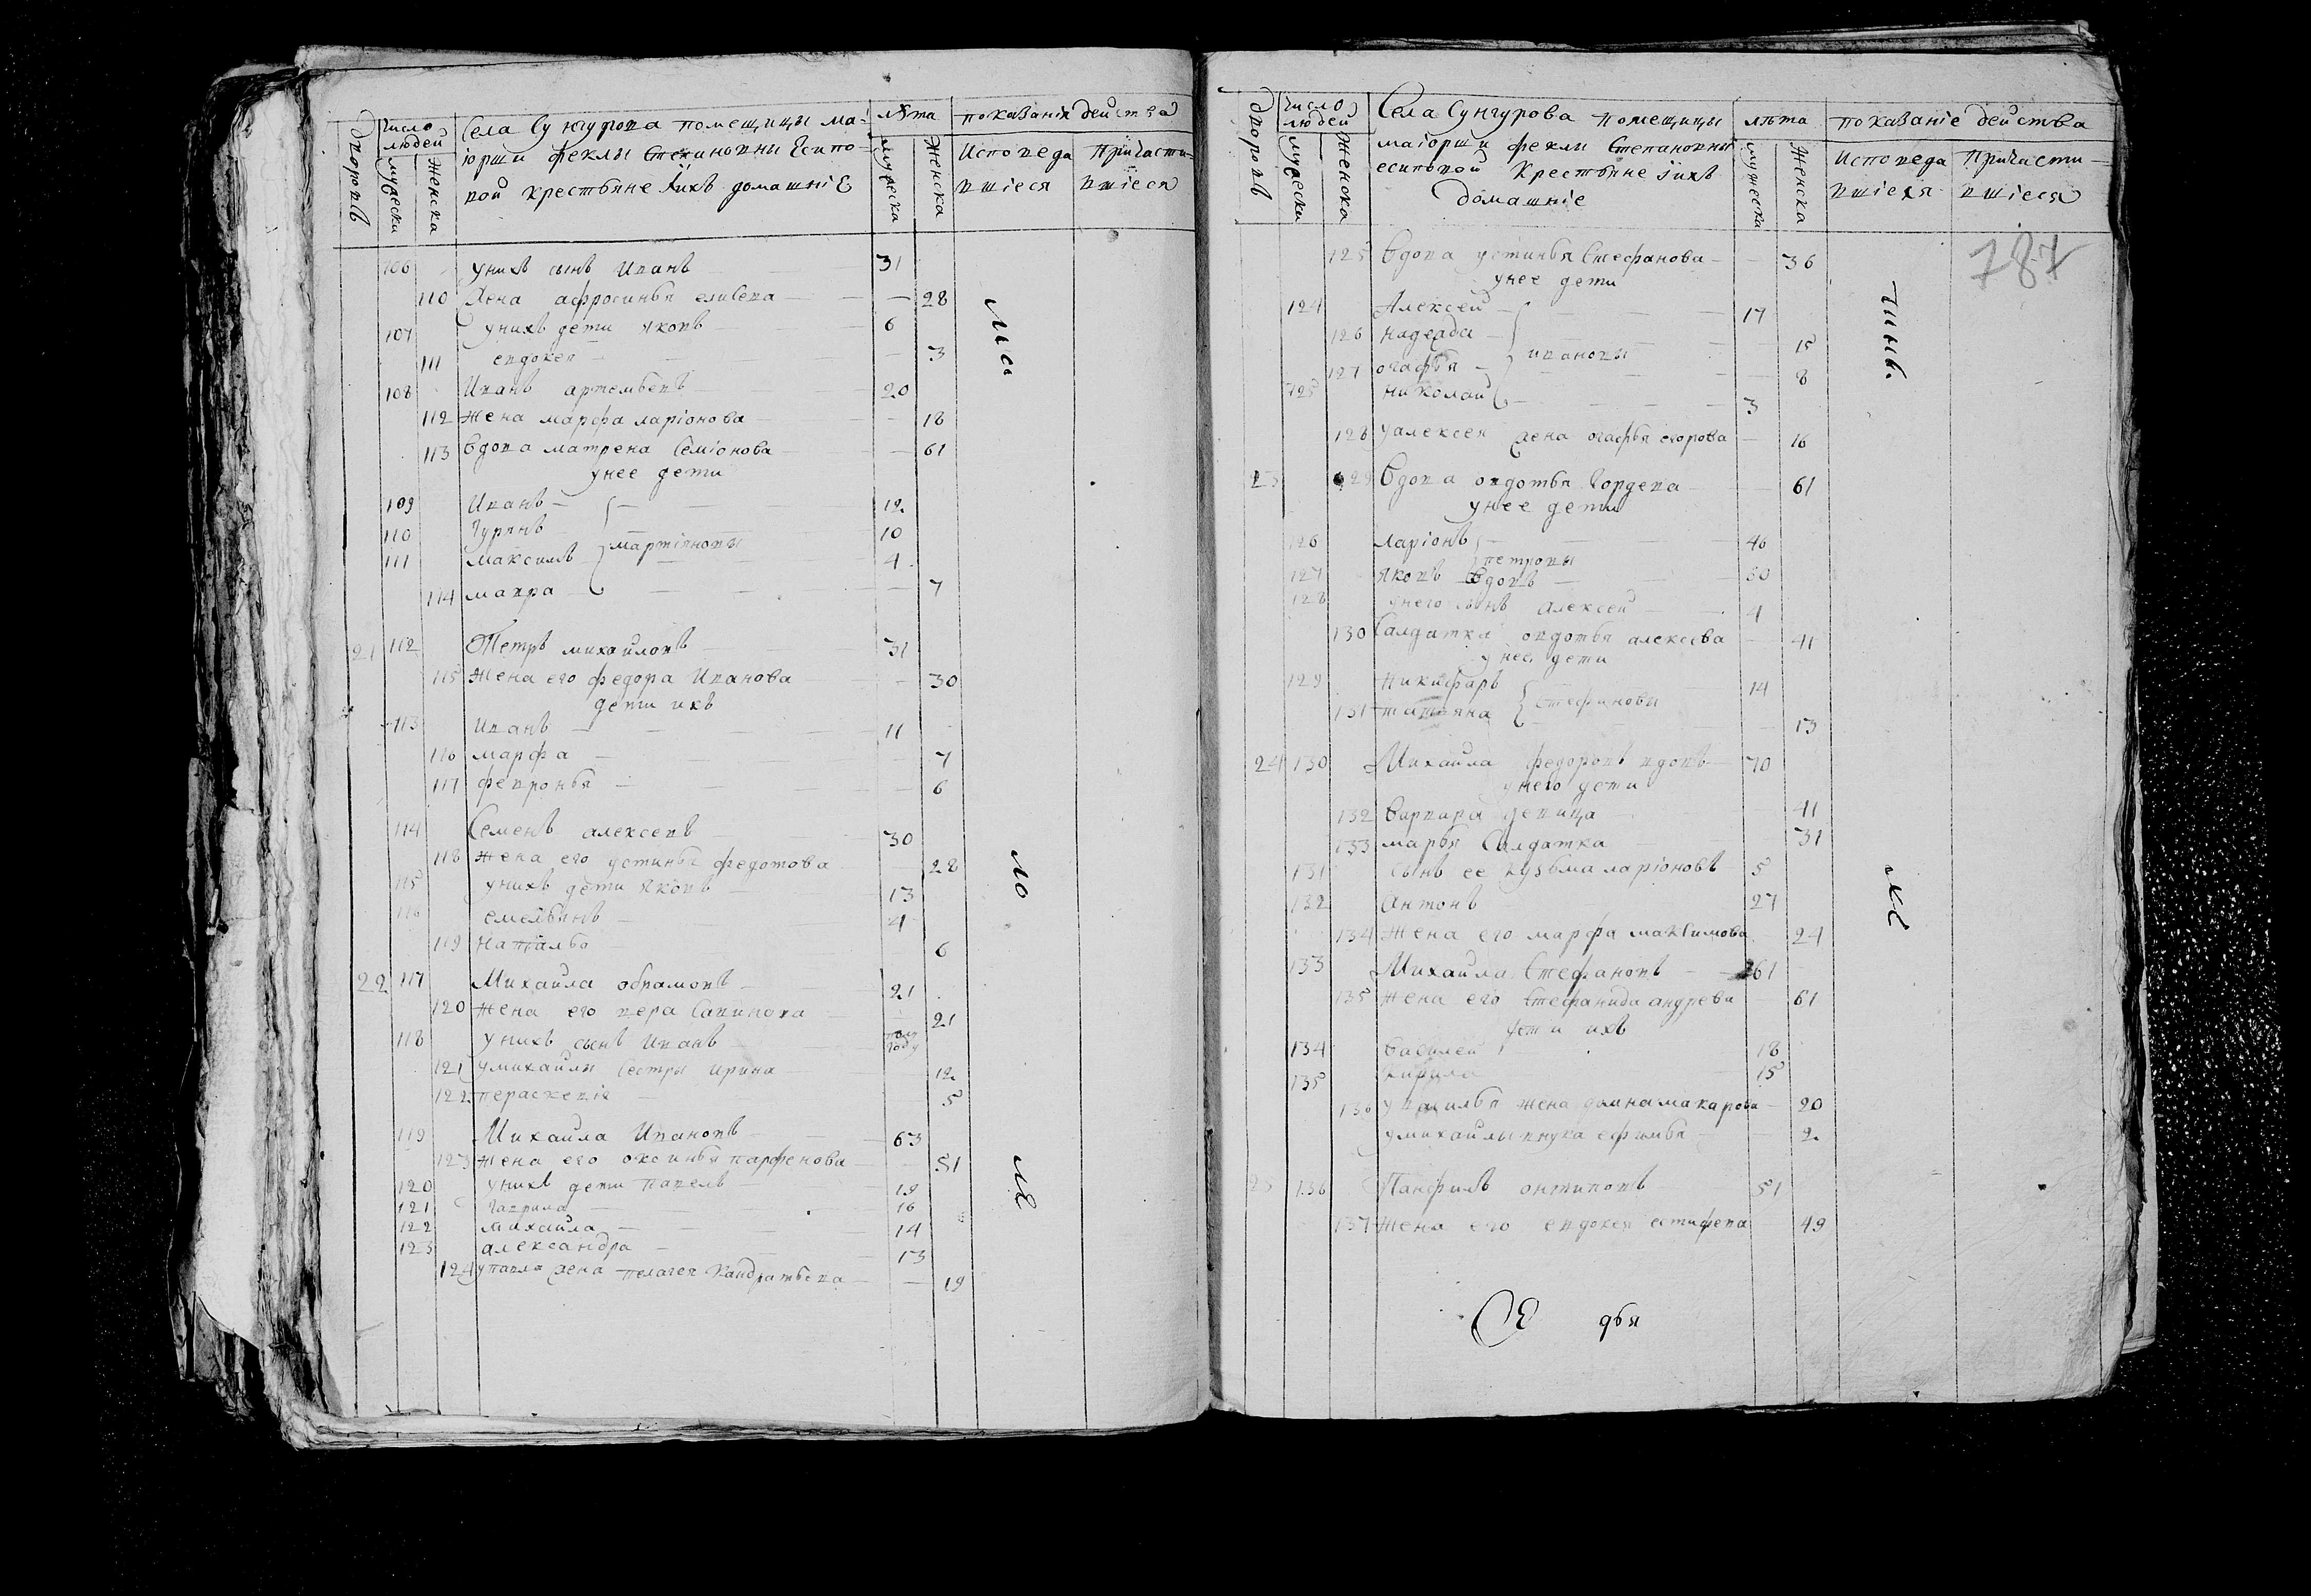 дворовъ
число людей
мужеска
женска
Села Сунгурова помещицы ма-
іорши феклы Степановны Есипо-
вой крестьяне и ихъ домашніе
лѣта
мужеска
женска
показанія действа
Исповеда
вшіеся
Причасти-
вшіеся
106 у нихъ сынъ Иванъ 31
110 Жена афросинья елисева 28
107 у нихъ дети яковъ 6
111 евдокея 3
108 Иванъ артемьевъ 20
112 жена марфа ларіонова 18
113 вдова матрена Семіонова 61
у нее дети
109 Иванъ 12
110 Гурянъ 10
мартіновы
111 максимъ 4
114 мавра 7
21 112 Петръ михайловъ 31
115 жена его федора Иванова 30
дети ихъ
113 Иванъ 11
116 марфа 7
117 февронья 6
114 Семенъ алексевъ 30
118 жена его устинья федотова 28
115 у нихъ дети яковъ 13
116 емельянъ 4
119 наталья 6
22 117 Михаила обрамовъ 21
120 жена его вера Савинова 21
118 у нихъ сынъ Иванъ полу году
121 у михайлы Сестры ирина 12
122 пераскевія 5
119 Михаила Ивановъ 63
123 жена его оксинья парфенова 51
120 у нихъ дети павелъ 19
121 гаврила 16
122 михаила 14
123 александра 13
124 у павла жена пелагея Кандратьева 19
мси
мо
ле
дворовъ
число людей
мужески
женска
Села Сунгурова помещицы
маіорши феклы Степановны
есиповой крестьяне і ихъ
домашніе
лѣта
мужески
женска
показаніе действа
Исповеда
вшіеся
Причасти-
вшіеся
787
125 вдова устинья Стефанова 36
у нее дети
124 Алексей 17
126 надежда 15
ивановы
127 огафья 8
125 николай 3
128 у алексея жена огафья егорова 16
23 129 вдова овдотья Гордева 61
у нее дети
126 ларіонъ 40
петровы
127 яковъ вдовъ 30
128 у него сынъ алексей 4
130 Салдатка овдотья алексева 41
у нее дети
129 никифаръ 14
Стефановы
131 татьяна 13
24 130 Михаила федоровъ вдовъ 70
у него дети
132 варвара девица 41
133 марья Салдатка 31
131 сынъ ее кузьма ларіоновъ 5
132 антонъ 27
134 жена его марфа максимова 24
133 Михаила Стефановъ 61
135 жена его Стефанида андрева 61
дети ихъ
134 василей 18
135 кирила 15
136 у василья жена домна макарова 20
у михайлы внука ефимья 2
25 136 Панфилъ онтиповъ 51
137 жена его евдокея естифева 49
тинъ.
же
дья